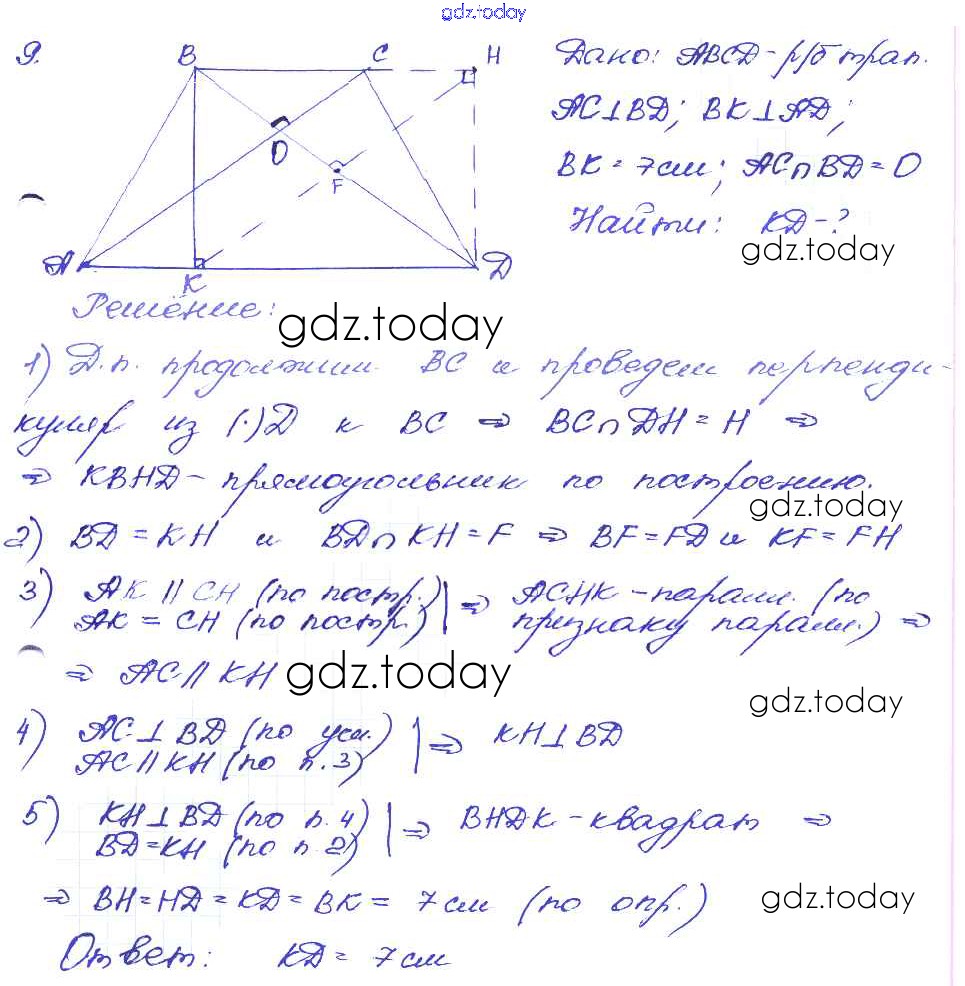 gdz.today
9.
B C H
O
F
A K D
Дано: ABCD - р/б трап.
AC⊥BD; BK⊥AD;
BK = 7см; AC∩BD = O
Найти: KD - ?
gdz.today
Решение:
gdz.today
1) Д.п. продолжим BC и проведем перпенди-
куляр из (·)D к BC ⇒ BC∩DH = H ⇒
⇒ KBHD - прямоугольник по построению.
gdz.today
2) BD = KH и BD∩KH = F ⇒ BF = FD и KF = FH
3) AK || CH (по постр.) | ⇒ ACHK - паралл. (по
AK = CH (по постр.) | признаку паралл.) ⇒
⇒ AC || KH
gdz.today
gdz.today
4) AC⊥BD (по усл.) | ⇒ KH⊥BD
AC || KH (по п.3) |
5) KH⊥BD (по п.4) | ⇒ BHDK - квадрат ⇒
BD = KH (по п.2) |
⇒ BH = HD = KD = BK = 7см (по опр.)
gdz.today
Ответ: KD = 7см